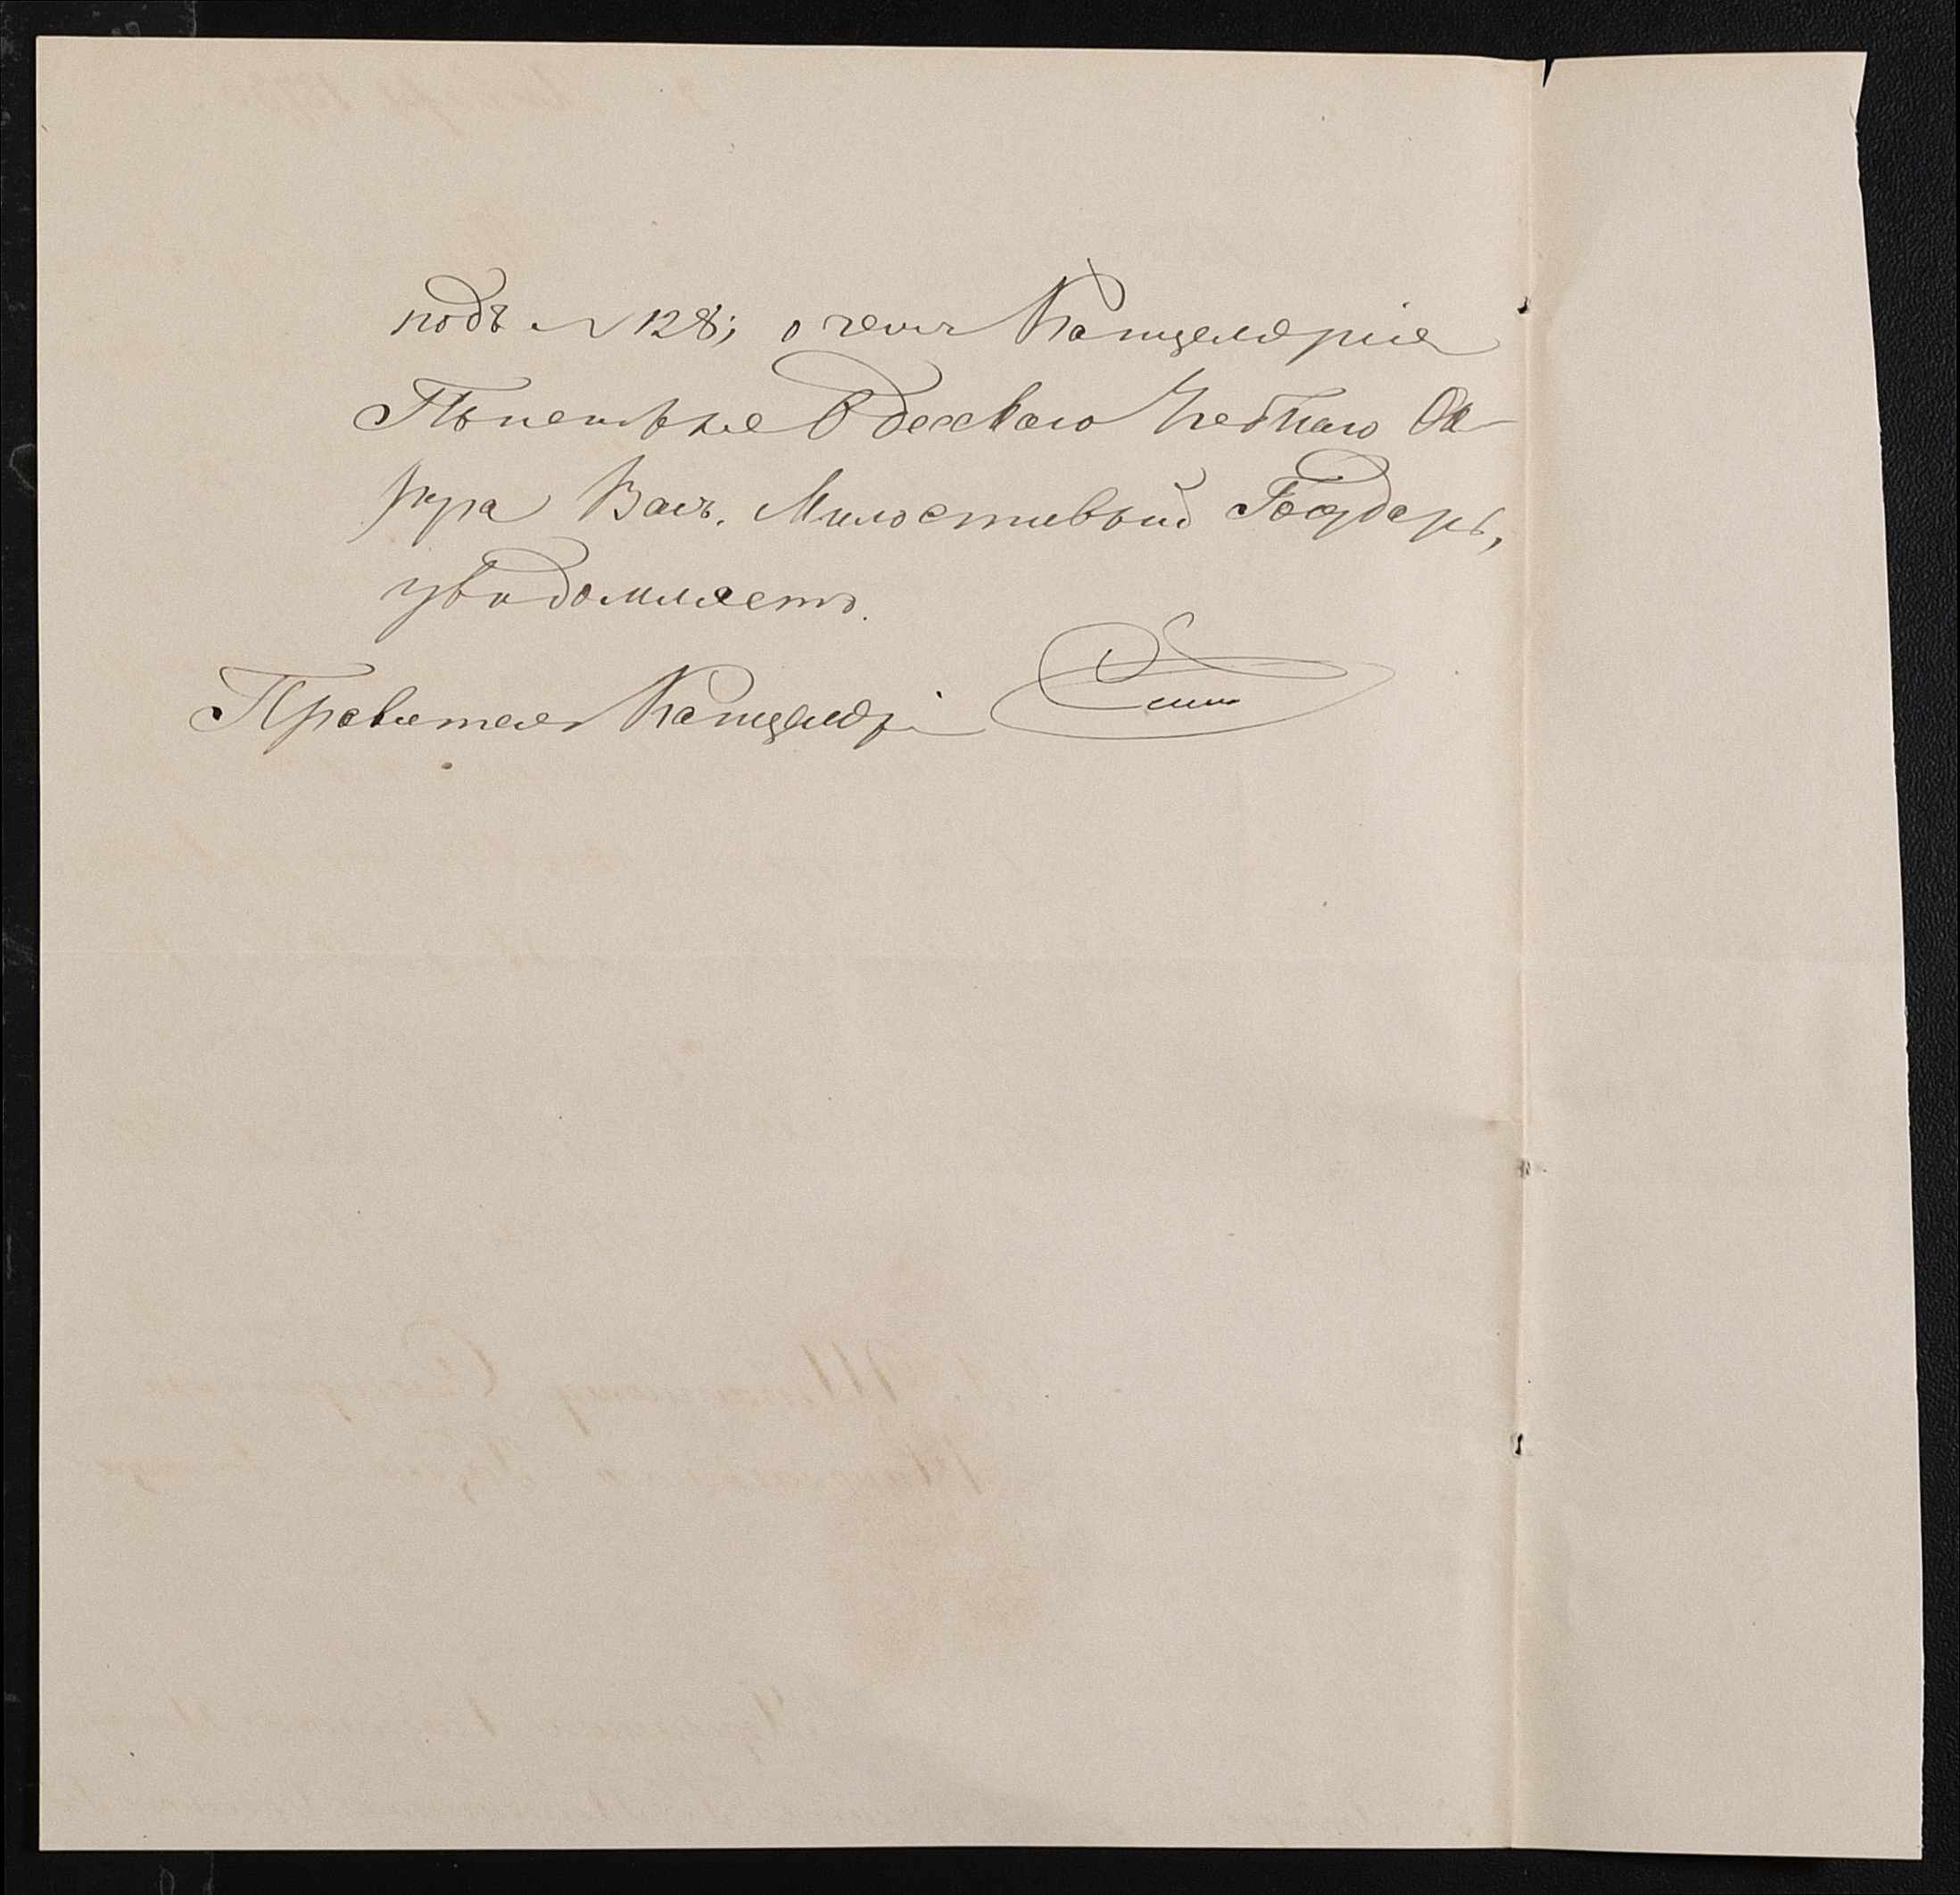 подъ № 128; о чемъ Канцелярія
Попечителя Одесскаго Учебнаго Ок-
руга Васъ, Милостивый Государь,
увѣдомляетъ.
Правитель Канцеляріи